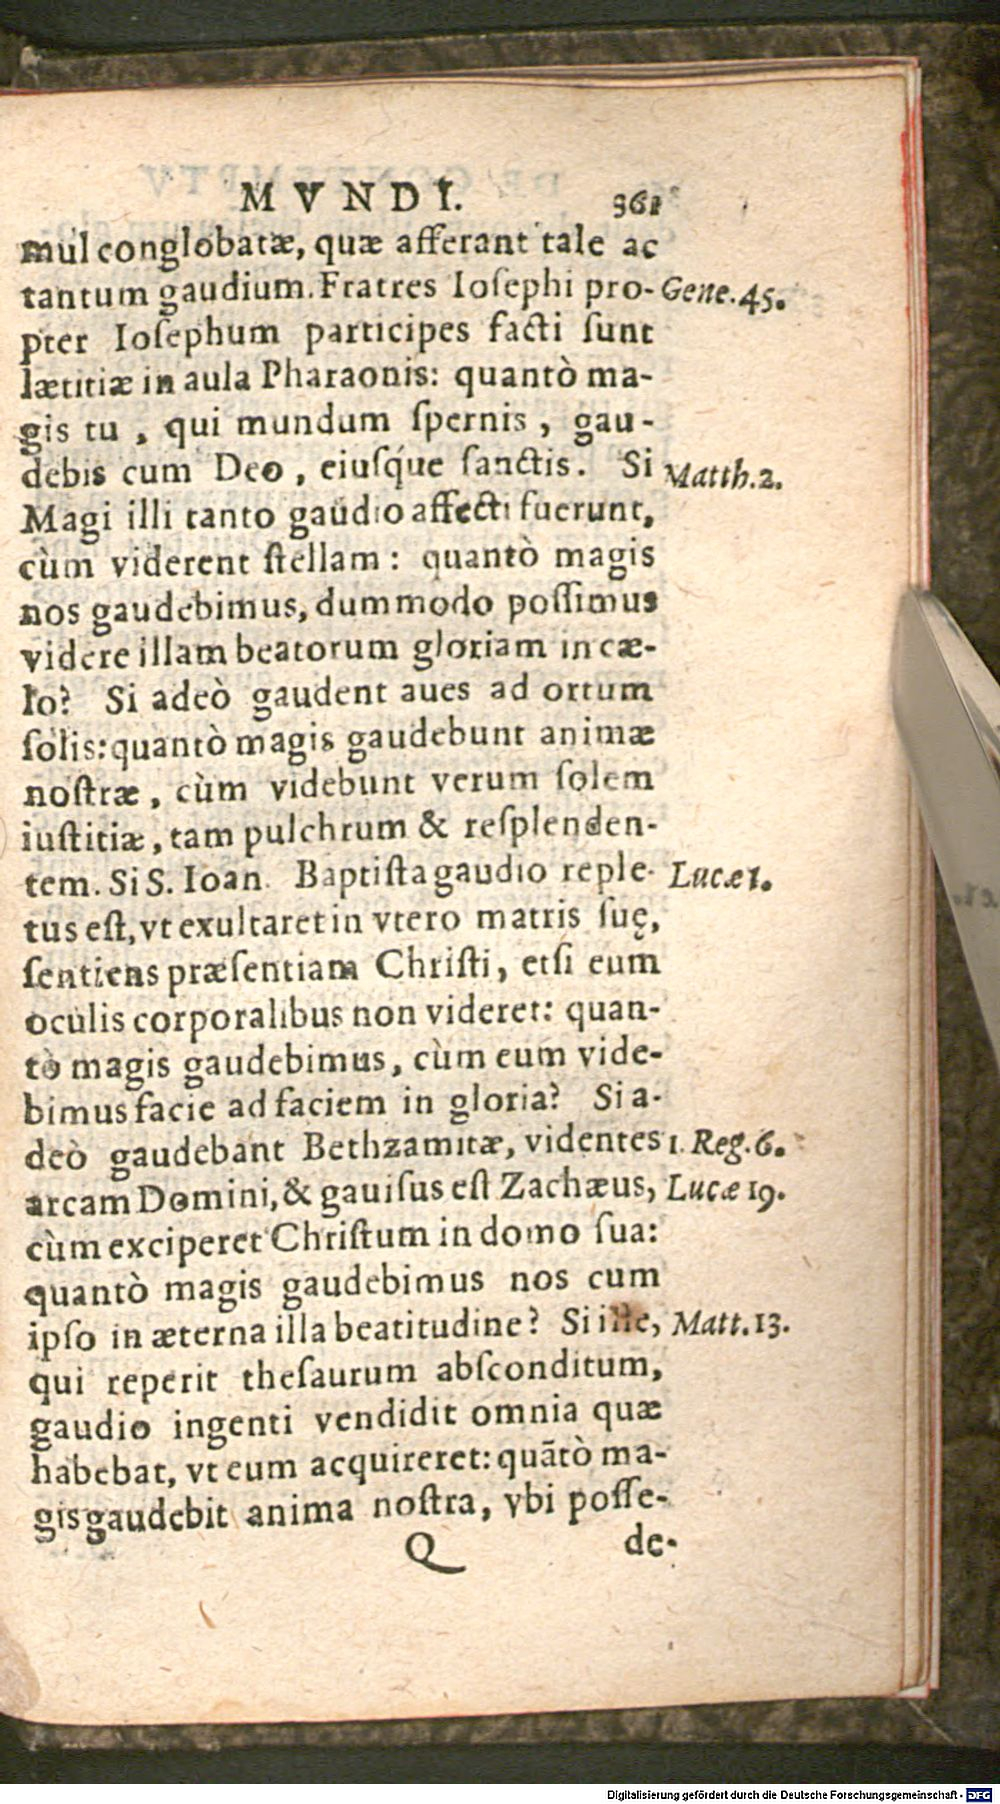 MVNDI. 361
mul conglobatæ, quæ afferant tale ac
tantum gaudium. Fratres Ioſephi pro- Gene. 45.
pter Ioſephum participes facti ſunt
lætitiæ in aula Pharaonis: quantò ma-
gis tu, qui mundum ſpernis, gau-
debis cum Deo, eiuſq́ue ſanctis. Si Matth. 2.
Magi illi tanto gaudio affecti fuerunt,
cùm viderent ſtellam: quantò magis
nos gaudebimus, dummodo poſſimus
videre illam beatorum gloriam in cæ-
lo? Si adeò gaudent aues ad ortum
ſolis: quantò magis gaudebunt animæ
noſtræ, cùm videbunt verum ſolem
iuſtitiæ, tam pulchrum & reſplenden-
tem. Si S. Ioan. Baptiſta gaudio reple- Lucæ 1.
tus eſt, vt exultaret in vtero matris ſuę,
ſentiens præſentiam Chriſti, etſi eum
oculis corporalibus non videret: quan-
tò magis gaudebimus, cùm eum vide-
bimus facie ad faciem in gloria? Si a-
deò gaudebant Bethzamitæ, videntes 1. Reg. 6.
arcam Domini, & gauiſus eſt Zachæus, Lucæ 19.
cùm exciperet Chriſtum in domo ſua:
quantò magis gaudebimus nos cum
ipſo in æterna illa beatitudine? Si ille, Matt. 13.
qui reperit theſaurum abſconditum,
gaudio ingenti vendidit omnia quæ
habebat, vt eum acquireret: quãtò ma-
gis gaudebit anima noſtra, vbi poſſe-
Q de-
Digitalisierung gefördert durch die Deutsche Forschungsgemeinschaft - DFG